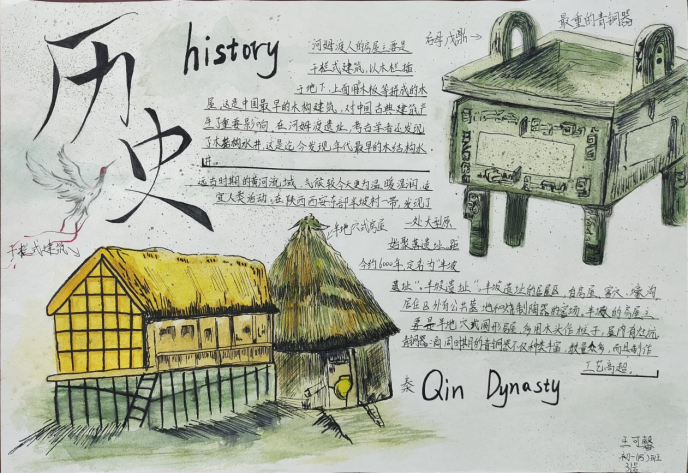 历史
history
后母戊鼎
最重的青铜器
河姆渡人的房屋主要是
干栏式建筑，以木栏插
于地下，上面用木板等拼成的木
屋，这是中国最早的木构建筑，对中国古典建筑产
生了重要影响，在河姆渡遗址，考古学者还发现
了木构水井，这是迄今发现年代最早的木结构水
井。
远古时期的黄河流域，气候较今天更为温暖湿润，适
宜人类活动，在陕西西安东部半坡村一带，发现了
一处大型原
始聚落遗址，距
今约6000年，定名为"半坡
遗址"，半坡遗址的居住区，有房屋、窖穴、壕沟
居住区外有公共墓地和烧制陶器的窑场，半坡的房屋主
要是半地穴式圆形房屋，多用木头作柱子，屋内有火坑
青铜器：商周时期的青铜器不仅种类丰富，数量众多，而且制作
工艺高超。
半地穴式房屋
干栏式建筑
秦 Qin Dynasty
王可馨
初一(15)班